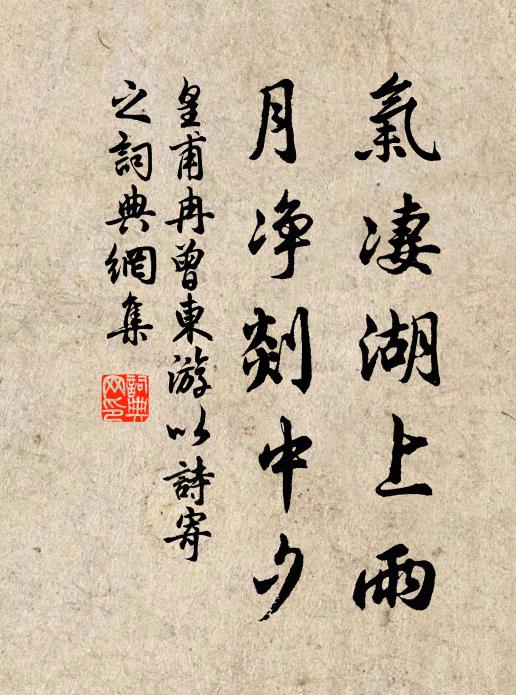 氣凄湖上雨
月净剡中夕
皇甫冉曾東游以詩寄
之詞典網集
詞典
网印